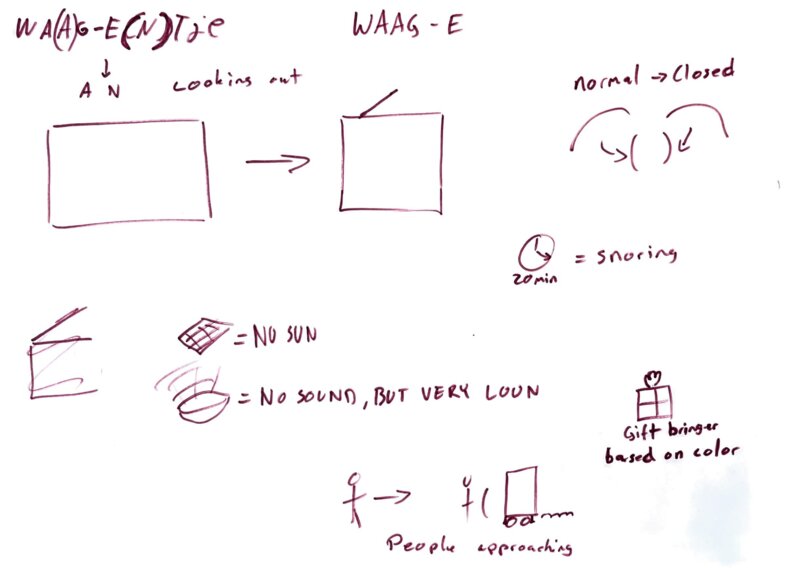 WA(A)G-E(N)Tje
WAAG-E
A N
Looking out
normal → Closed
20min
= snoring
= NO SUN
= NO SOUND, BUT VERY LOUN
Gift bringer
based on color
People approaching